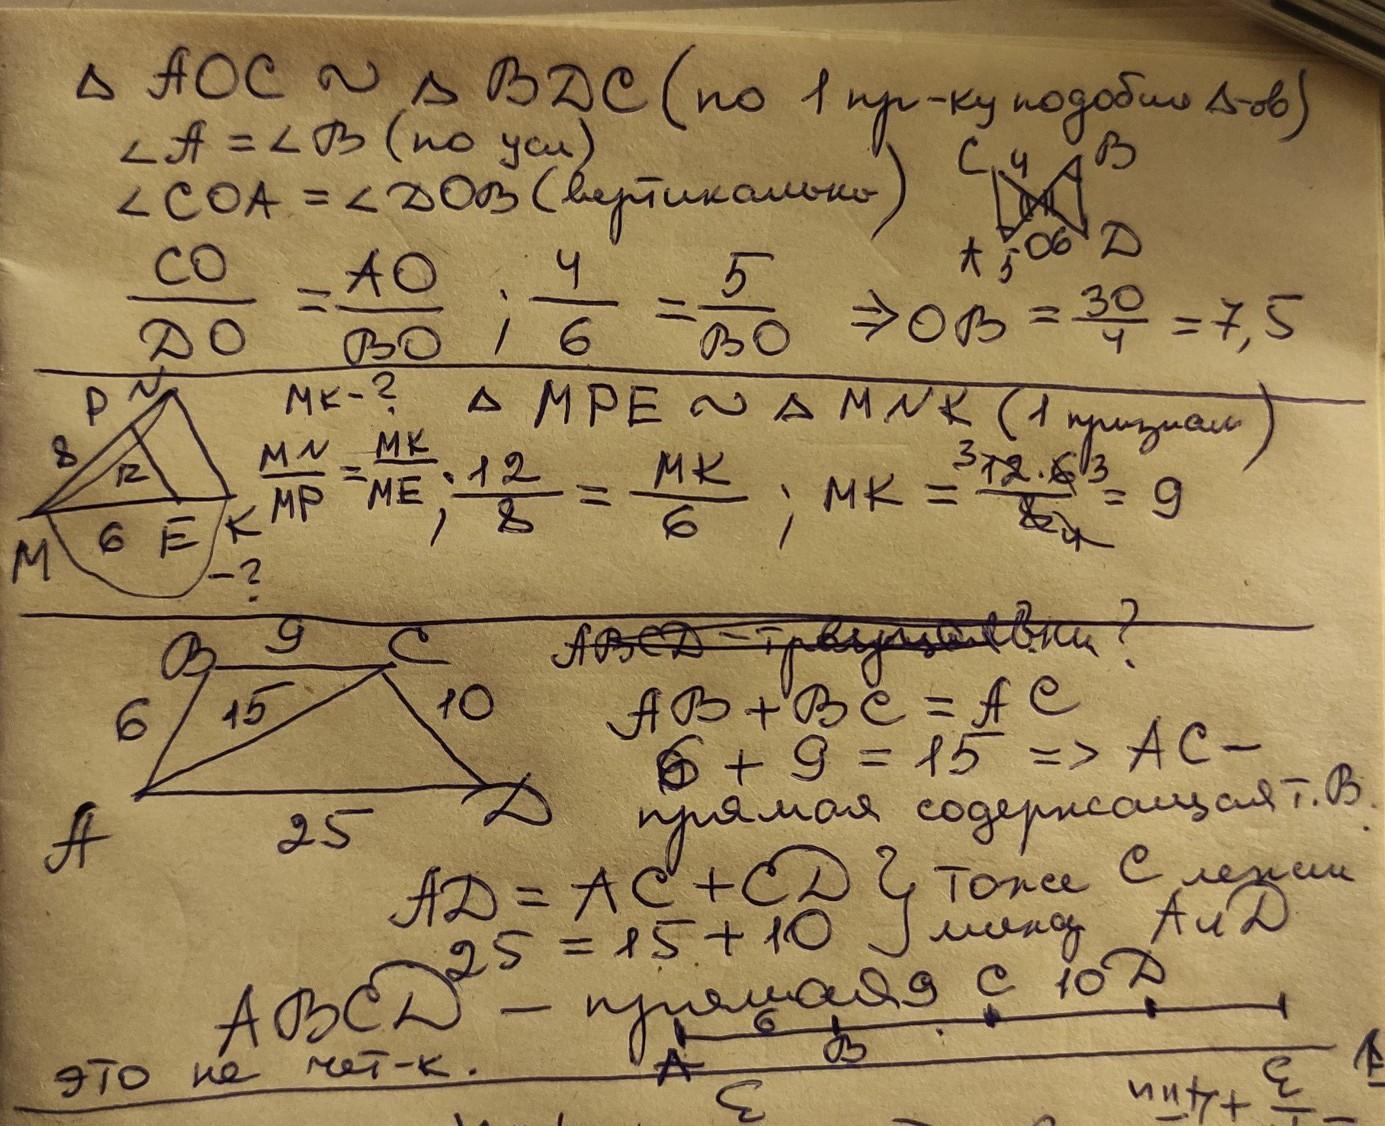 △ AOC ~ △ BDC (по 1 пр-ку подобию △-ов)
∠A = ∠B (по усл)
∠COA = ∠DOB (вертикально)
C 4 B
A 5 O 6 D
CO/DO = AO/BO ; 4/6 = 5/BO ⇒ OB = 30/4 = 7,5
P N MK-? △ MPE ~ △ MNK (1 признак)
8 12
MN/MP = MK/ME ; 12/8 = MK/6 ; MK = 12·6/8 = 9
3 3
4
M 6 E K
-?
B 9 C ABCD - ?
6 15 10
AB + BC = AC
6 + 9 = 15 => AC -
прямая содержащая т. B.
A 25 D
AD = AC + CD } тоже C лежит
25 = 15 + 10 между A и D
ABCD - прямая 9 C 10 D
6
A B
это не чет-к.